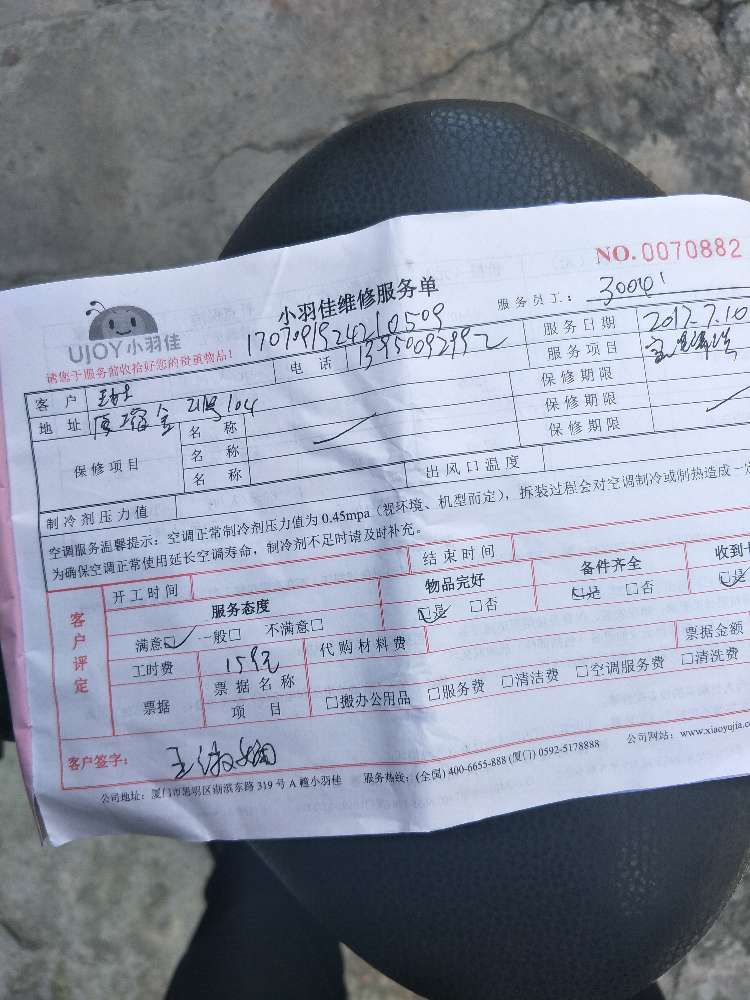 NO.0070882
小羽佳维修服务单
服务员工:
UJOY小羽佳
请您于服务前收拾好您的贵重物品!
1707091924210509
服务日期 2017.7.10
电话 13950092992
服务项目
客户
保修期限
地址 104
名称
保修期限
保修项目 名称
保修期限
名称
出风口温度
制冷剂压力值
空调服务温馨提示:空调正常制冷剂压力值为0.45mpa(视环境、机型而定),拆装过程会对空调制冷或制热造成一定
为确保空调正常使用延长空调寿命,制冷剂不足时请及时补充。
开工时间 结束时间
客户评定
服务态度 物品完好 备件齐全 收到
满意□ 一般□ 不满意□ □是 □否 □是 □否 □是
工时费 159元 代购材料费
票据 票据名称 票据金额
项目 □搬办公用品 □服务费 □清洁费 □空调服务费 □清洗费
客户签字: 王淑娟
公司地址:厦门市思明区湖滨东路319号A幢小羽佳 服务热线:(全国)400-6655-888(厦门)0592-5178888 公司网站:www.xiaoyujia.co